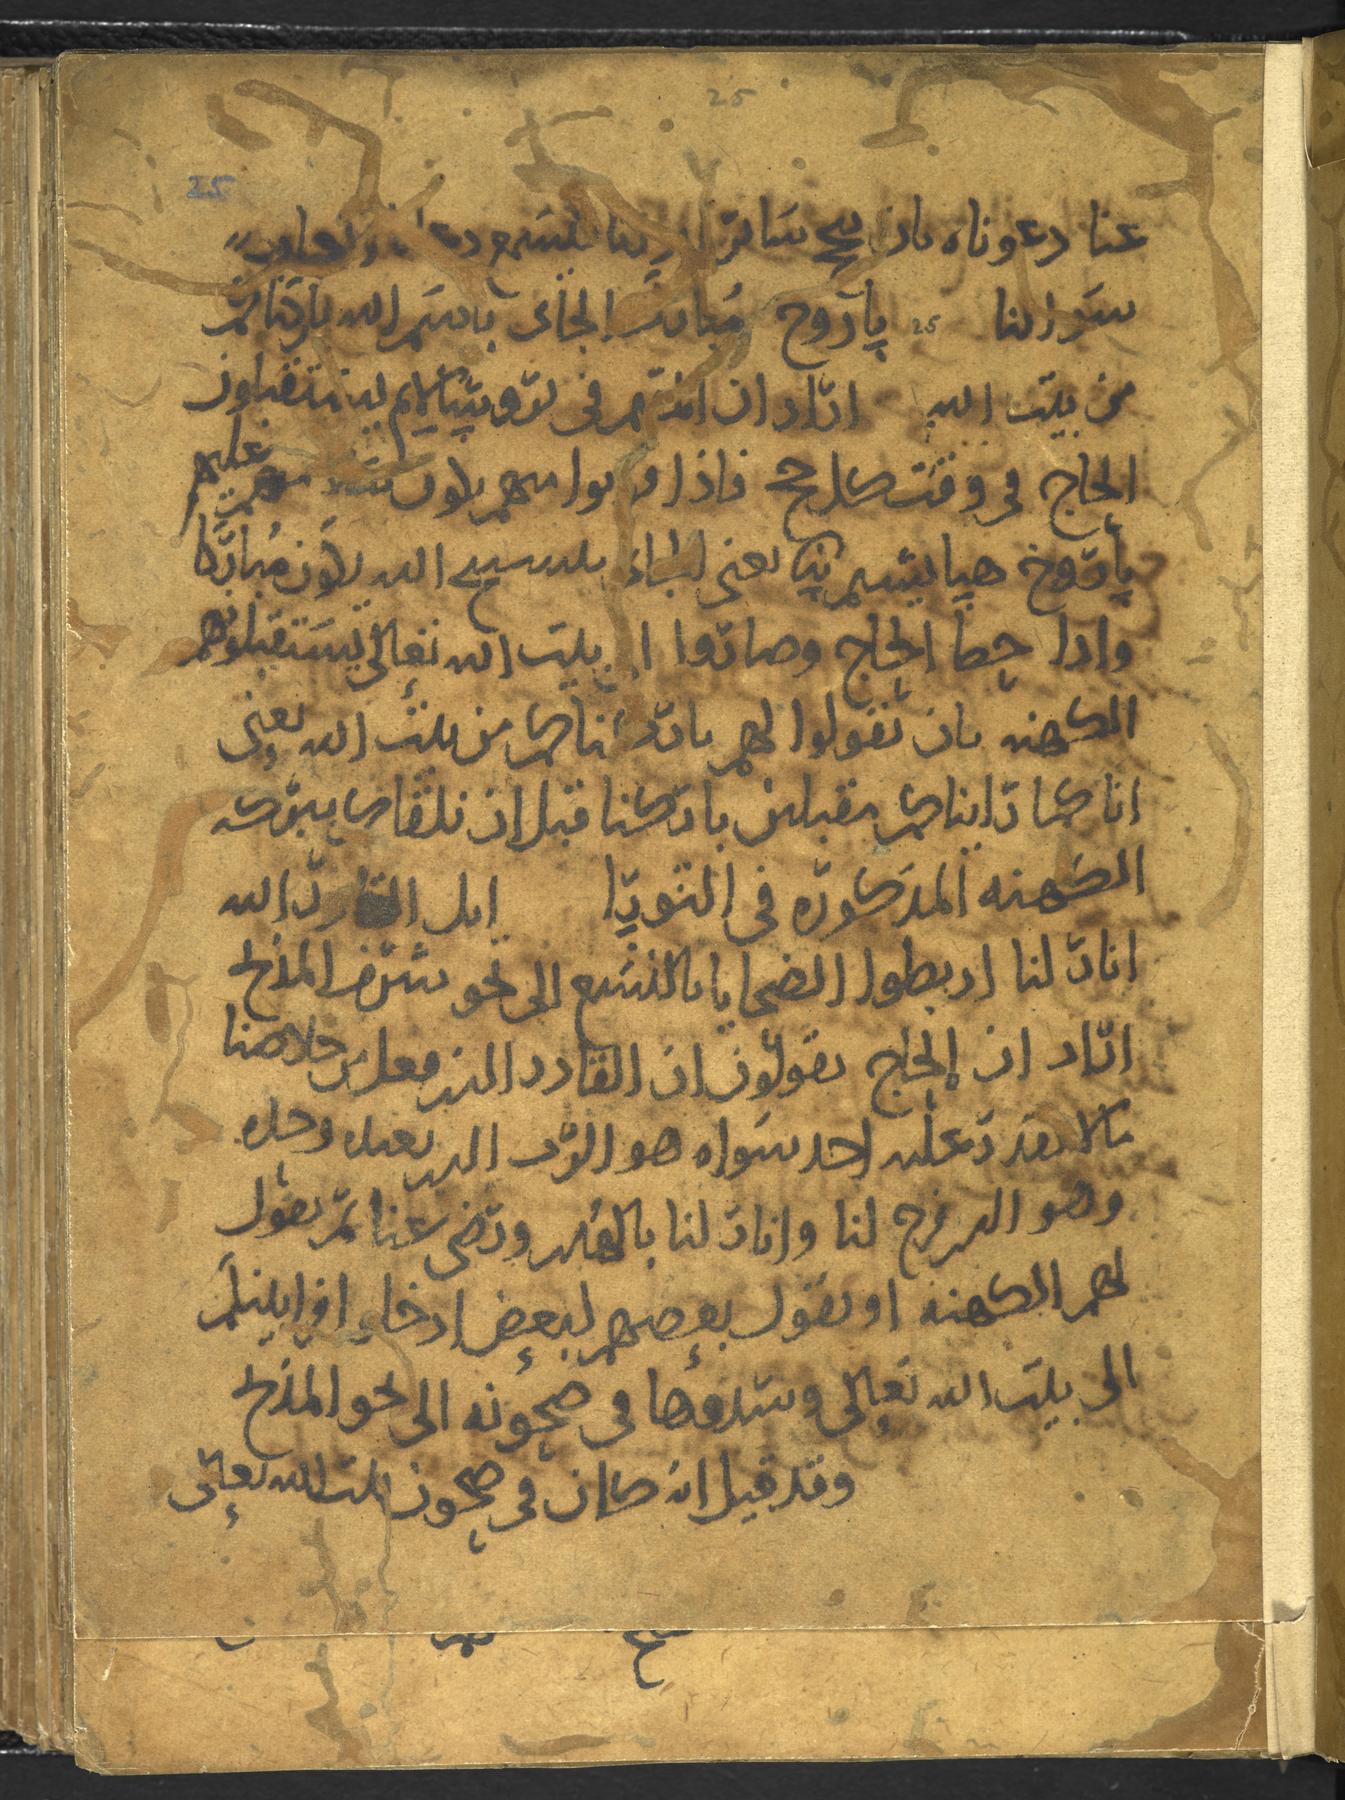 25
25
عنا دعوناه بان يجح سائر
سرائرنا 25 پاروح مُبارك الجاى باسم الله باركناكم
من بيت الله اراد ان في يستقبلون
الحاج في وقت كل حج فاذا منهم يقولون عليهم
پاروخ هبا بشيم يعني الجاء الله يكون مُباركا
واذا حصا الحاج وصاروا الى بيت الله تعالى يستقبلونهم
الكهنه بان يقولوا لهم باركناكم من بيت الله يعني
انا كما رايناكم مقبلين باركنا قبل ان نلقاكم ببركه
الكهنه المذكوره في التوريه ايل القادر الله
انار لنا اربطوا الضحايا بالنسع الى نحو شرف المذبح
اراد ان الحاج يقولون ان القادر الذي فعل من خلاصنا
ما لا يقدر عليه احد سواه هو الرب الذي نعبده وحده
وهو الذي فرج لنا وانار لنا بالفرج ورضى عنا ثم يقول
لهم الكهنه او يقول بعضهم لبعض ادخلو
الى بيت الله تعالى وشدوها في صحونه الى نحو المذبح
وقد قيل انه كان في صحون بيت الله تعالى